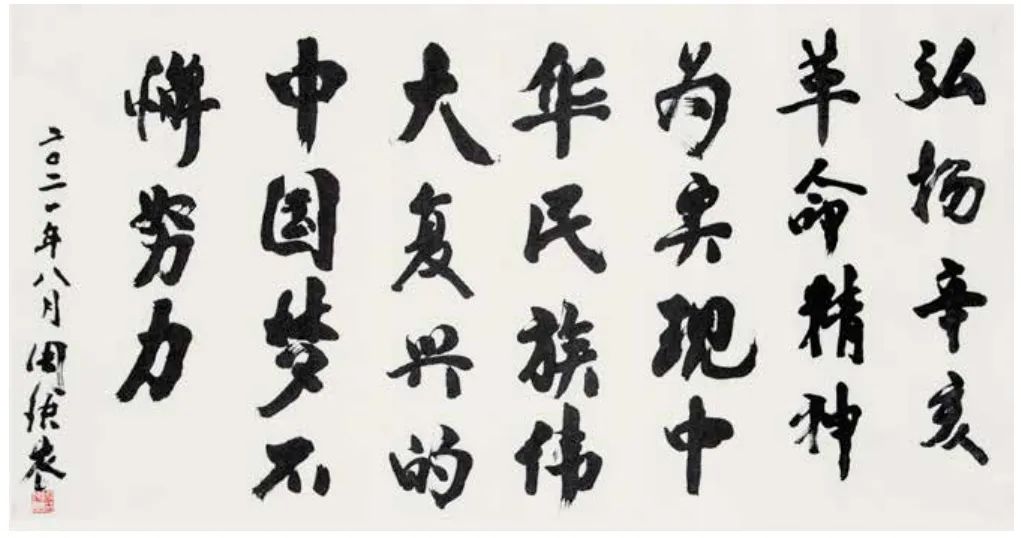 弘扬辛亥
革命精神
为实现中
华民族伟
大复兴的
中国梦不
懈努力
二〇二一年八月 周